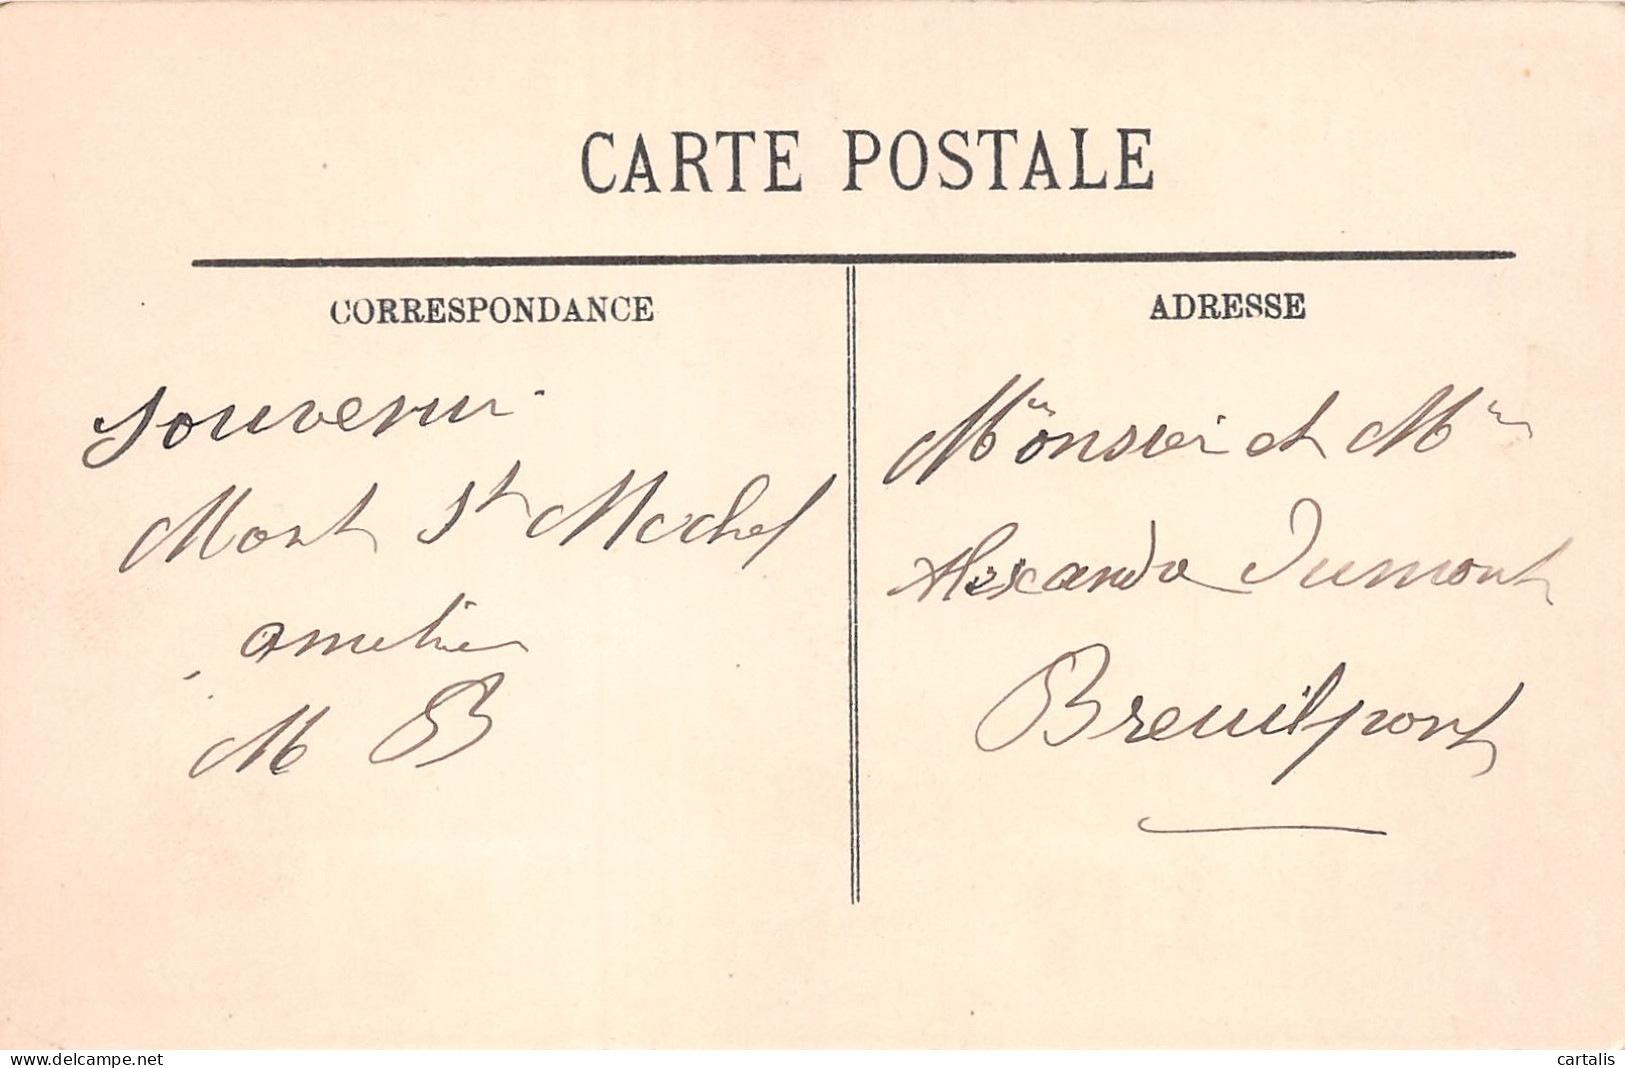 CARTE POSTALE
CORRESPONDANCE
souvenir
Mont St Michel
amitiés
M B
ADRESSE
Monsieur et Mme
Alexandre Dumont
Breuilpont
www.delcampe.net
cartalis